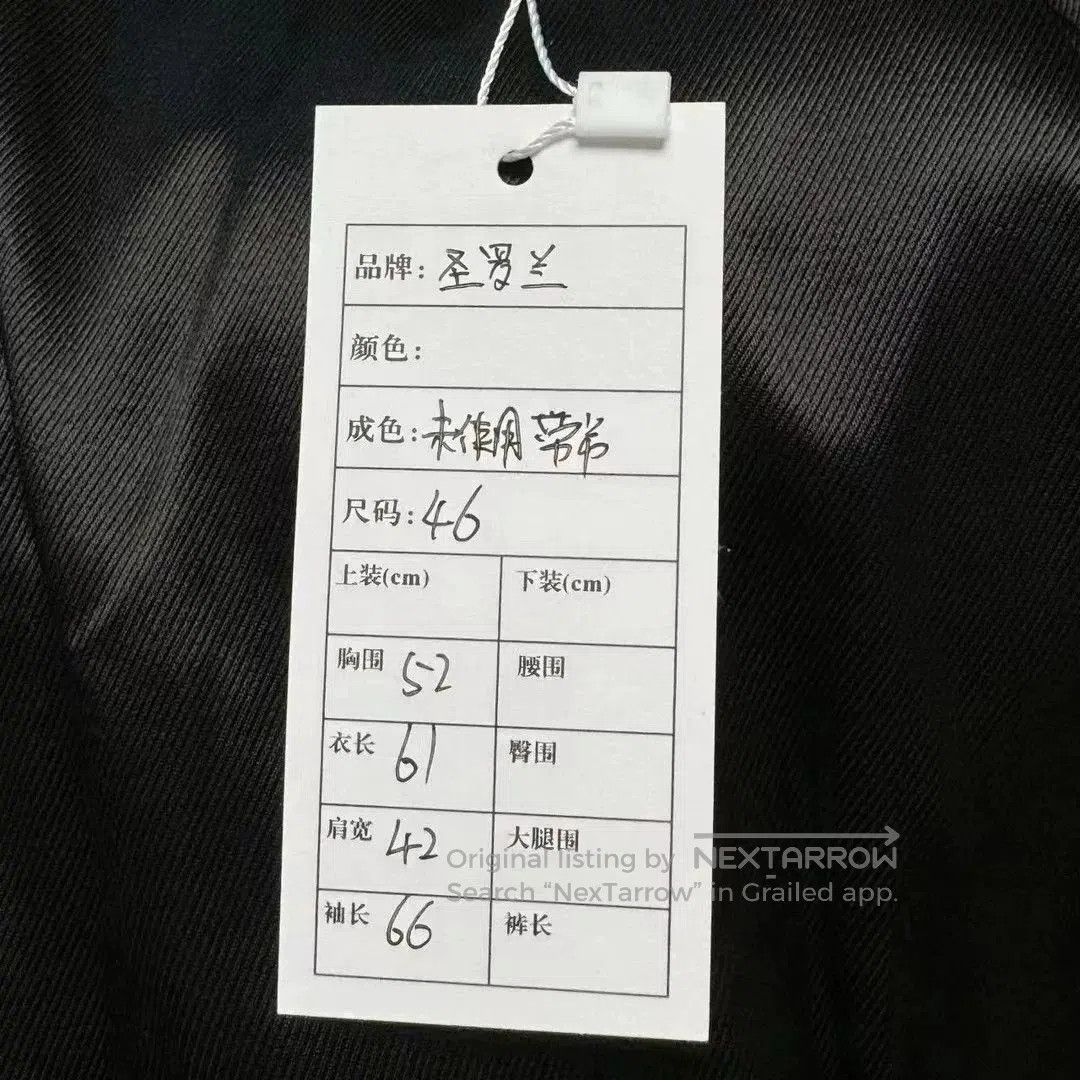 品牌：圣罗兰
颜色：
成色：未使用 带吊
尺码：46
上装(cm) 下装(cm)
胸围 52 腰围
衣长 61 臀围
肩宽 42 大腿围
Original listing by NEXTARROW
Search “NexTarrow” in Grailed app.
袖长 66 裤长